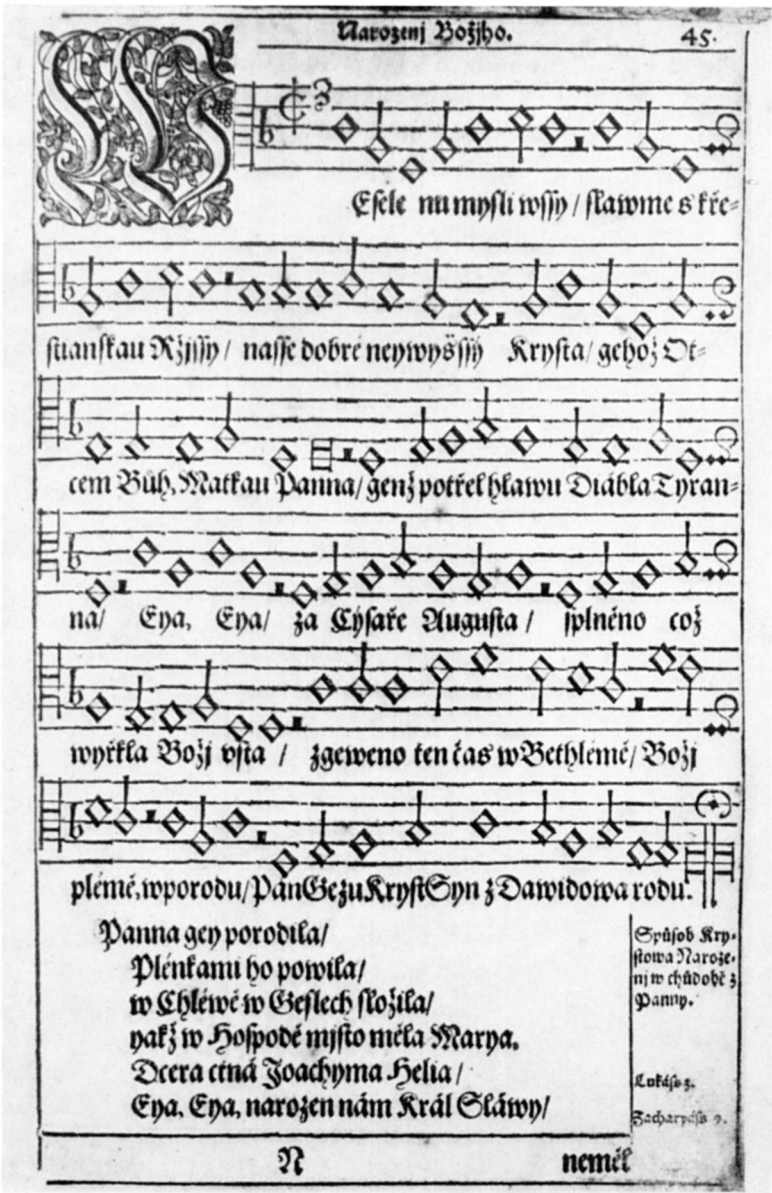 Narozenj Božjho. 45.
WEsele nu mysli wssy / slawme s kře-
stianskau Ržjssy / nasse dobré neywyšssý Krysta / gehož Ot-
cem Bůh, Matkau Panna / genž potřel hlawu Diábla Tyran-
na / Eya, Eya / za Cýsaře Augusta / splněno což
wyřkla Božj vsta / zgeweno ten čas w Bethlémě / Božj
plémě, w porodu / Pán Gežu Kryst Syn z Dawidowa rodu.
Panna gey porodila /
Plénkami ho powila /
w Chléwě w Geslech složila /
yakž w Hospodě mjsto měla Marya.
Dcera ctná Joachyma Helia /
Eya, Eya, narozen nám Král Sláwy /
Spůsob Kry-
stowa Naroze-
nj w chůdobě z
Panny.
Lukáss 3.
Zacharyáss 9.
N neměl